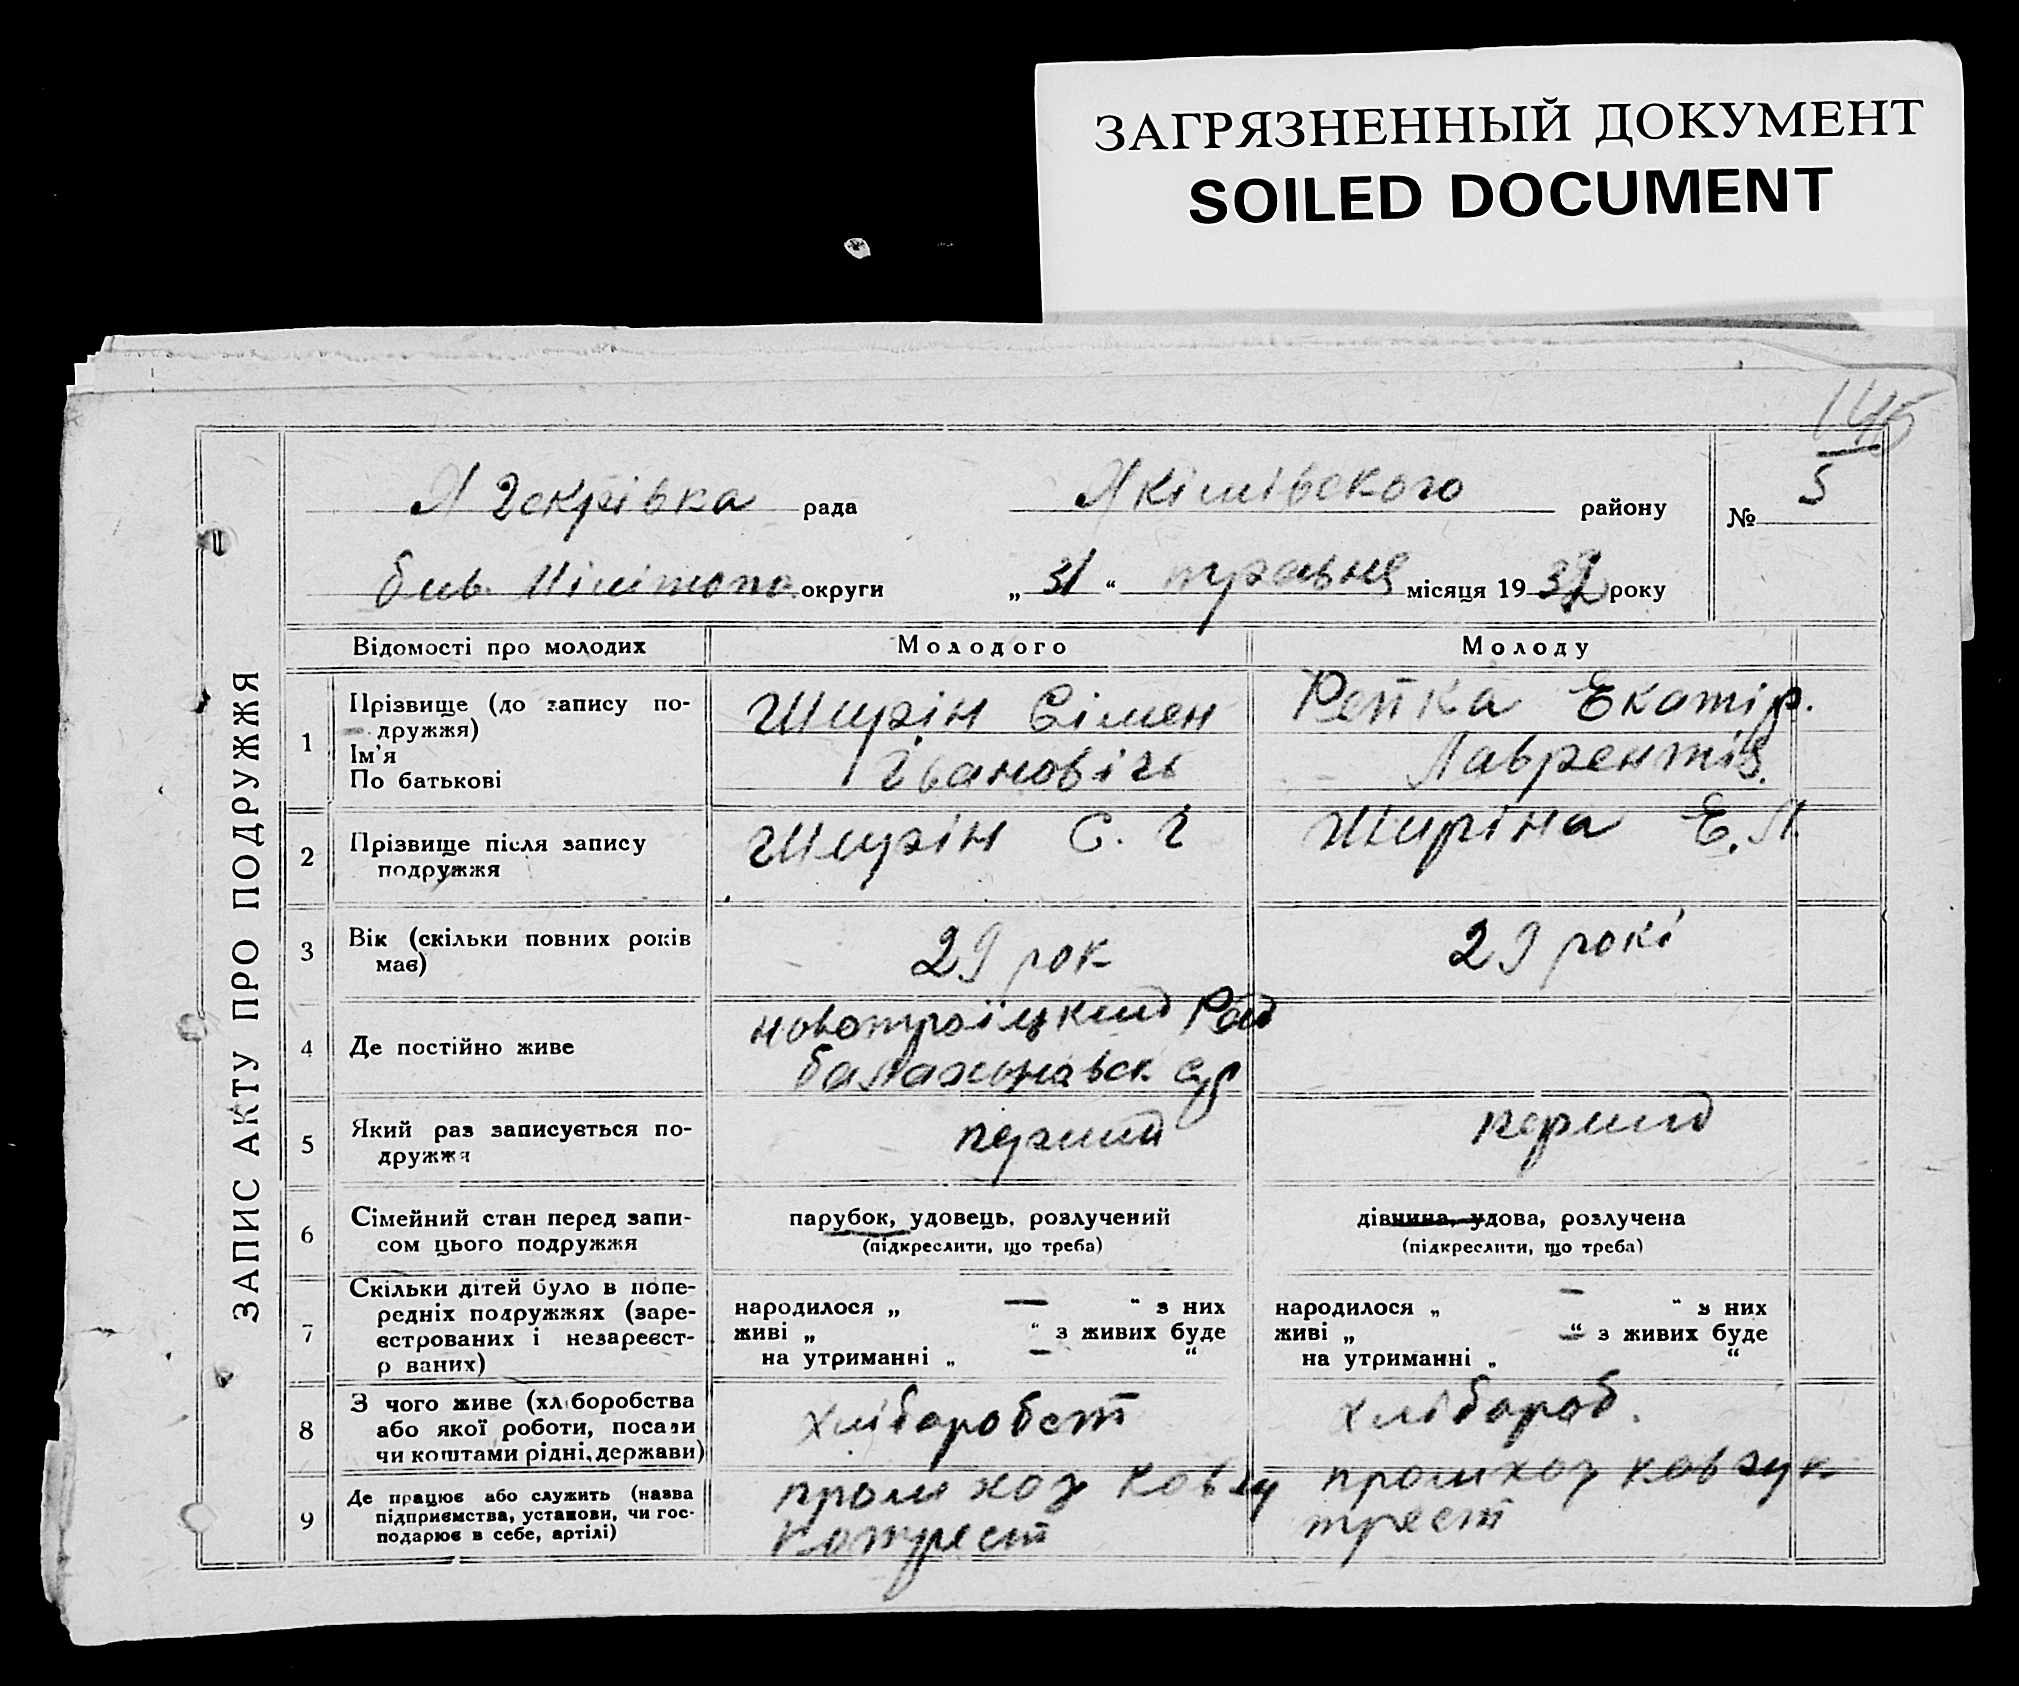 ЗАГРЯЗНЕННЫЙ ДОКУМЕНТ
SOILED DOCUMENT
ЗАПИС АКТУ ПРО ПОДРУЖЖЯ
рада Якімівського району № 5
округи „ 31 “ травня місяця 1932 року
Відомості про молодих Молодого Молоду
1 Прізвище (до запису по-
дружжя)
Ім'я
По батькові
Жирін Сімен
Івановіч
Репка Екатір.
Лаврентів.
2 Прізвище після запису
подружжя
Жирін С. І
Жиріна Е. Л
3 Вік (скільки повних років
має)
29 рок
29 рокі
4 Де постійно живе
новотроіцкий
5 Який раз записується по-
дружжя
перший
перший
6 Сімейний стан перед запи-
сом цього подружжя
парубок, удовець, розлучений
(підкреслити, що треба)
дівчина, удова, розлучена
(підкреслити, що треба)
7 Скільки дітей було в попе-
редніх подружжях (заре-
єстрованих і незареєст-
р ваних)
народилося „ — “ з них
живі „ “ з живих буде
на утриманні „ — “
народилося „ — “ з них
живі „ — “ з живих буде
на утриманні „ “
8 З чого живе (хліборобства
або якої роботи, посади
чи коштами рідні, держави)
хлібаробст
хлібароб.
9 Де працює або служить (назва
підприємства, установи, чи гос-
подарює в себе, артілі)
промхоз
промхоз
трест